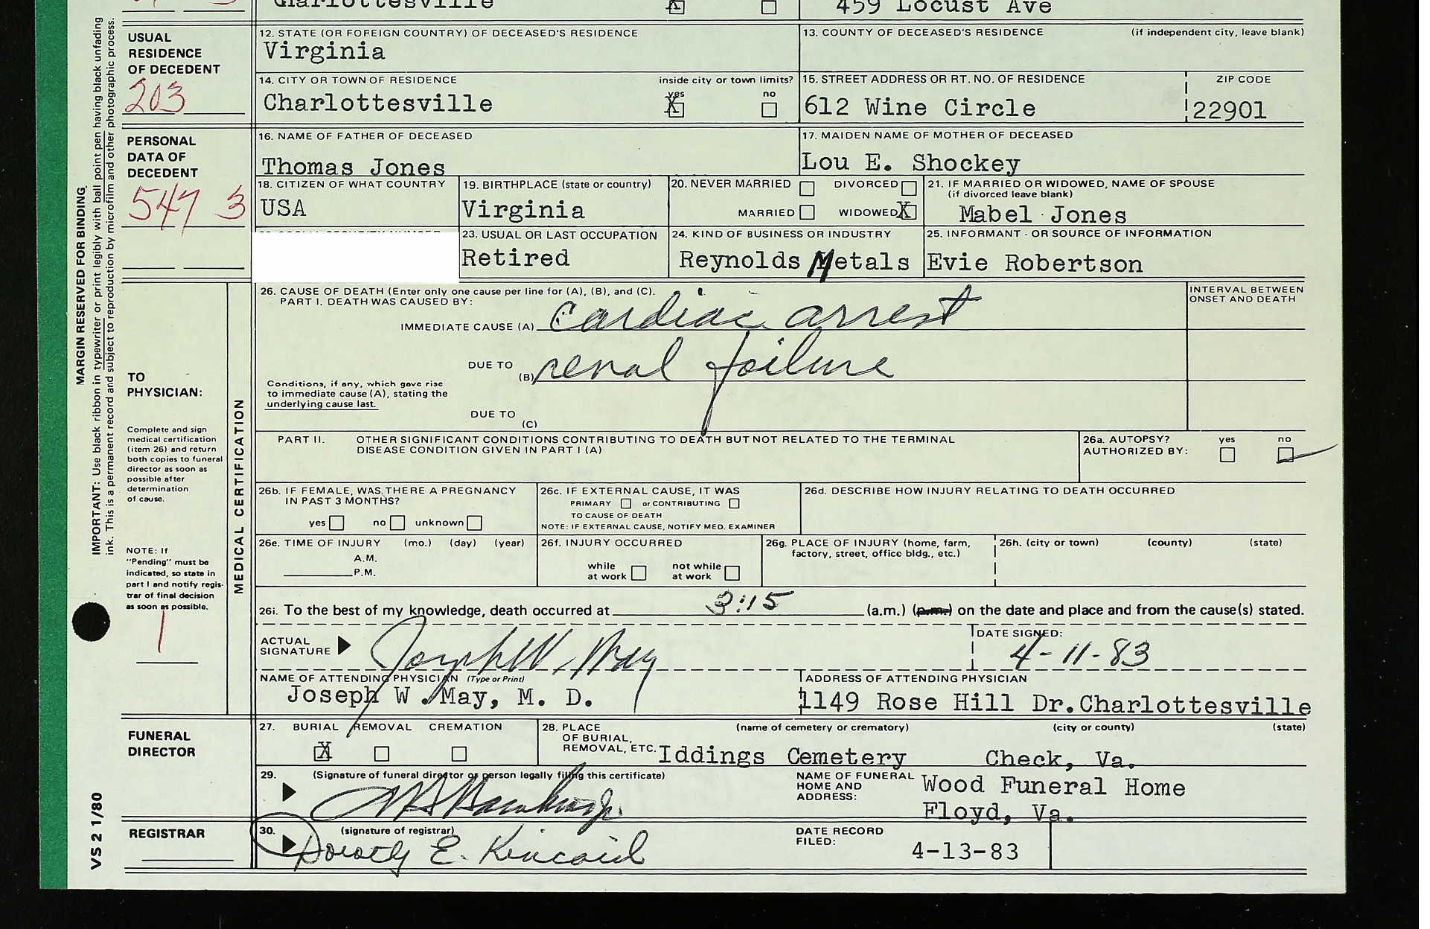 Charlottesville X 459 Locust Ave
USUAL RESIDENCE OF DECEDENT
203
12. STATE (OR FOREIGN COUNTRY) OF DECEASED'S RESIDENCE
Virginia
13. COUNTY OF DECEASED'S RESIDENCE (if independent city, leave blank)
14. CITY OR TOWN OF RESIDENCE inside city or town limits?
Charlottesville yes X no
15. STREET ADDRESS OR RT. NO. OF RESIDENCE ZIP CODE
612 Wine Circle 22901
PERSONAL DATA OF DECEDENT
547 3
16. NAME OF FATHER OF DECEASED
Thomas Jones
17. MAIDEN NAME OF MOTHER OF DECEASED
Lou E. Shockey
18. CITIZEN OF WHAT COUNTRY
USA
19. BIRTHPLACE (state or country)
Virginia
20. NEVER MARRIED DIVORCED
MARRIED WIDOWED X
21. IF MARRIED OR WIDOWED, NAME OF SPOUSE
(if divorced leave blank)
Mabel Jones
23. USUAL OR LAST OCCUPATION
Retired
24. KIND OF BUSINESS OR INDUSTRY
Reynolds Metals
25. INFORMANT - OR SOURCE OF INFORMATION
Evie Robertson
MARGIN RESERVED FOR BINDING
IMPORTANT: Use black ribbon in typewriter or print legibly with ball point pen having black unfading
ink. This is a permanent record and subject to reproduction by microfilm and other photographic process.
TO PHYSICIAN:
Complete and sign
medical certification
(item 26) and return
both copies to funeral
director as soon as
possible after
determination
of cause.
NOTE: If
"Pending" must be
indicated, so state in
part I and notify regis-
trar of final decision
as soon as possible.
1
MEDICAL CERTIFICATION
26. CAUSE OF DEATH (Enter only one cause per line for (A), (B), and (C).
PART I. DEATH WAS CAUSED BY:
INTERVAL BETWEEN
ONSET AND DEATH
IMMEDIATE CAUSE (A) cardiac arrest
DUE TO (B) renal failure
Conditions, if any, which gave rise
to immediate cause (A), stating the
underlying cause last.
DUE TO (C)
PART II. OTHER SIGNIFICANT CONDITIONS CONTRIBUTING TO DEATH BUT NOT RELATED TO THE TERMINAL
DISEASE CONDITION GIVEN IN PART I (A)
26a. AUTOPSY? yes no
AUTHORIZED BY:
26b. IF FEMALE, WAS THERE A PREGNANCY
IN PAST 3 MONTHS?
yes no unknown
26c. IF EXTERNAL CAUSE, IT WAS
PRIMARY or CONTRIBUTING
TO CAUSE OF DEATH
NOTE: IF EXTERNAL CAUSE, NOTIFY MED. EXAMINER
26d. DESCRIBE HOW INJURY RELATING TO DEATH OCCURRED
26e. TIME OF INJURY (mo.) (day) (year)
A.M.
P.M.
26f. INJURY OCCURRED
while at work not while at work
26g. PLACE OF INJURY (home, farm,
factory, street, office bldg., etc.)
26h. (city or town) (county) (state)
26i. To the best of my knowledge, death occurred at 3:15 (a.m.) (p.m.) on the date and place and from the cause(s) stated.
ACTUAL SIGNATURE Joseph W. May
DATE SIGNED:
4-11-83
NAME OF ATTENDING PHYSICIAN (Type or Print)
Joseph W. May, M. D.
ADDRESS OF ATTENDING PHYSICIAN
1149 Rose Hill Dr. Charlottesville
FUNERAL DIRECTOR
27. BURIAL REMOVAL CREMATION
X
28. PLACE OF BURIAL, REMOVAL, ETC. (name of cemetery or crematory) (city or county) (state)
Iddings Cemetery Check, Va.
29. (Signature of funeral director or person legally filing this certificate)
NAME OF FUNERAL HOME AND ADDRESS:
Wood Funeral Home
Floyd, Va.
REGISTRAR
30. (signature of registrar)
Dorothy E. Kincaid
DATE RECORD FILED:
4-13-83
VS 2 1/80